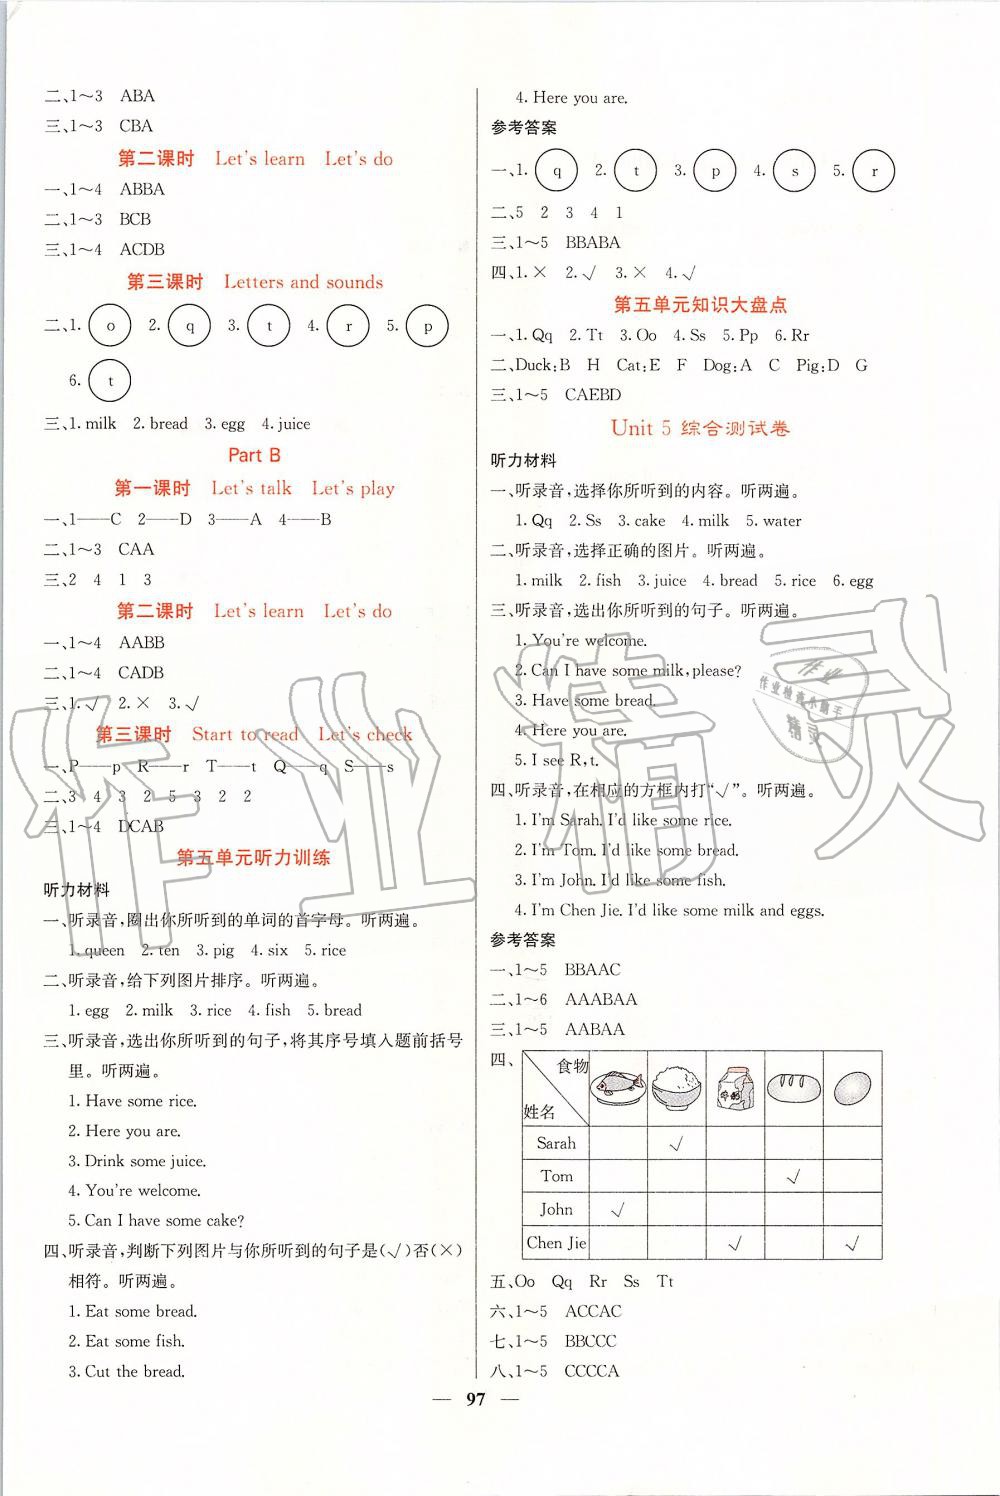 二、1～3 ABA
三、1～3 CBA
第二课时 Let's learn Let's do
一、1～4 ABBA
二、1～3 BCB
三、1～4 ACDB
第三课时 Letters and sounds
二、1. o 2. q 3. t 4. r 5. p
6. t
三、1. milk 2. bread 3. egg 4. juice
Part B
第一课时 Let's talk Let's play
一、1——C 2——D 3——A 4——B
二、1～3 CAA
三、2 4 1 3
第二课时 Let's learn Let's do
一、1～4 AABB
二、1～4 CADB
三、1.√ 2.× 3.√
第三课时 Start to read Let's check
一、P——p R——r T——t Q——q S——s
二、3 4 3 2 5 3 2 2
三、1～4 DCAB
第五单元听力训练
听力材料
一、听录音,圈出你所听到的单词的首字母。听两遍。
1. queen 2. ten 3. pig 4. six 5. rice
二、听录音,给下列图片排序。听两遍。
1. egg 2. milk 3. rice 4. fish 5. bread
三、听录音,选出你所听到的句子,将其序号填入题前括号
里。听两遍。
1. Have some rice.
2. Here you are.
3. Drink some juice.
4. You're welcome.
5. Can I have some cake?
四、听录音,判断下列图片与你所听到的句子是(√)否(×)
相符。听两遍。
1. Eat some bread.
2. Eat some fish.
3. Cut the bread.
4. Here you are.
参考答案
一、1. q 2. t 3. p 4. s 5. r
二、5 2 3 4 1
三、1～5 BBABA
四、1.× 2.√ 3.× 4.√
第五单元知识大盘点
一、1. Qq 2. Tt 3. Oo 4. Ss 5. Pp 6. Rr
二、Duck:B H Cat:E F Dog:A C Pig:D G
三、1～5 CAEBD
Unit 5 综合测试卷
听力材料
一、听录音,选择你所听到的内容。听两遍。
1. Qq 2. Ss 3. cake 4. milk 5. water
二、听录音,选择正确的图片。听两遍。
1. milk 2. fish 3. juice 4. bread 5. rice 6. egg
三、听录音,选出你所听到的句子。听两遍。
1. You're welcome.
2. Can I have some milk, please?
3. Have some bread.
4. Here you are.
5. I see R, t.
四、听录音,在相应的方框内打“√”。听两遍。
1. I'm Sarah. I'd like some rice.
2. I'm Tom. I'd like some bread.
3. I'm John. I'd like some fish.
4. I'm Chen Jie. I'd like some milk and eggs.
参考答案
一、1～5 BBAAC
二、1～6 AAABAA
三、1～5 AABAA
四、
食物
牛奶
姓名
Sarah √
Tom √
John √
Chen Jie √ √
五、Oo Qq Rr Ss Tt
六、1～5 ACCAC
七、1～5 BBCCC
八、1～5 CCCCA
— 97 —
作业精灵
作业
作业检查小助手
精灵